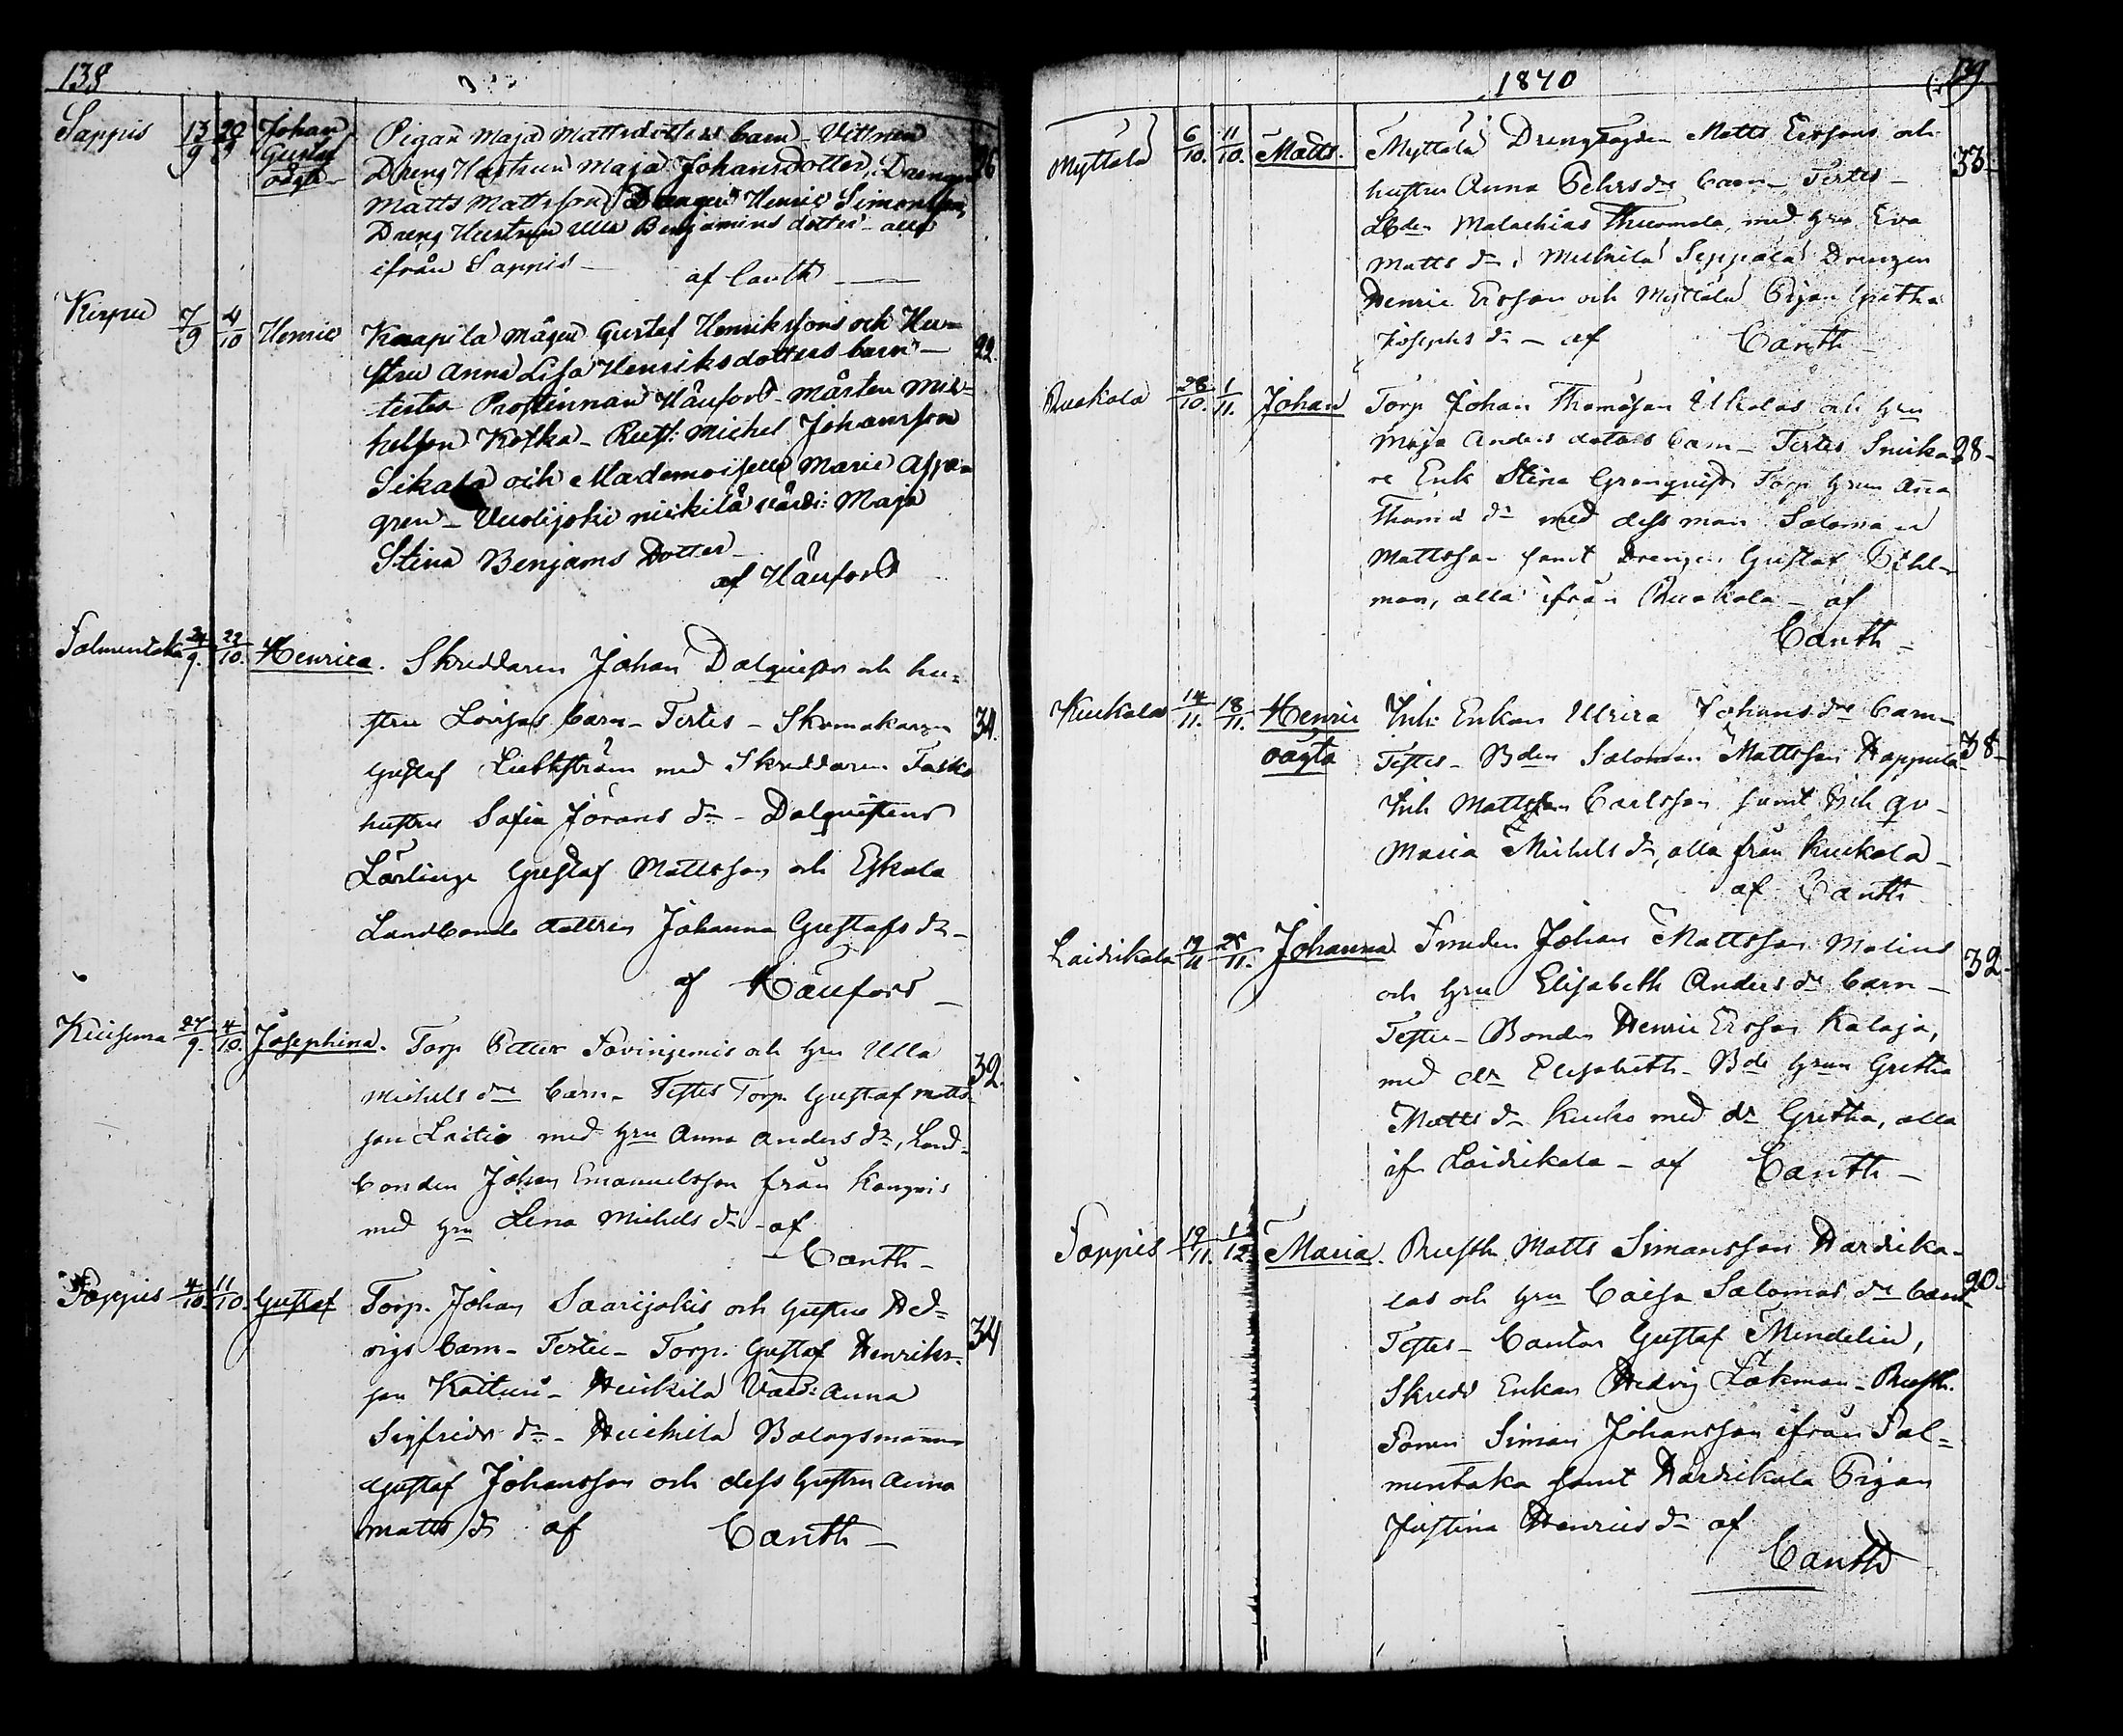 138
Sappis 13/9 20/9 Johan Gustaf oägta
Pigan Maja Mattsdotters barn - Vittnen
Dreng Hustrun Maja Johansdotter, Drengen 26
Matts Mattsson Drengen Henric Simonsson,
Dreng Hustrun Ulla Benjamins dotter - alla
ifrån Sappis -
af Canth -
Kirpu 7/9 4/10 Henric Knapila mågen Gustaf Henrikssons och Hu-
stru Anna Lisa Henriksdotters barn - 22
testes Prostinnan Håuford - Mårten Mic-
helsson Kotka - Rust: Michel Johansson
Sikala och Mademoiselle Marie Aspe-
gren - Niskilä värd: Maja
Stina Benjams Dotter -
af Håuford
Salmentaka 24/9. 22/10. Henrica. Skreddaren Johan Dalquist och hu-
stru Lovisas barn - Testes - Skomakaren 34.
Gustaf med Skreddaren
hustru Sofia Jörans dr - Dalquistens
Lärlinge Gustaf Mattsson och Eskola
Landbonde dottren Johanna Gustafs dr -
af Håufors -
Kuisema 27/9. 4/10. Josephina. Torp Petter och hru Ulla
Michels drs barn - Testes Torp Gustaf Matts- 32.
son Laitio med hru Anna Anders dr, Land-
bonden Johan Emanuelsson från Kangois
med hru Lena Michels dr - af
Canth -
Sappis 4/10. 11/10. Gustaf Torp. Johan Saarijokis och hustru Hed-
vigs barn - Testes - Torp. Gustaf Henriks- 34
son Kaituri - Heickilä Värd: Anna
Sigfrids dr - Heickilä Bolagsmannen
Gustaf Johansson och dess hustru Anna
Matts dr af Canth -
1840
139
Myttälä 6/10. 11/10. Matts. Myttälä Drengfogden Matts Erssons och 33 -
hustru Anna Pehrs drs barn - Testes -
Lbden Malachias Thuomola, med hru Eva
Matts dr, Seppälä Drengen
Henric Ersson och Myttälä Pigan Gretha
Josephs dr - af Canth -
Ruokola 28/10. 1/11. Johan Torp Johan Thomasson Ukolas och hru
Maja Anders dotters barn - Testes Snicka- 28 -
re Enk Stina Granquist Torp hrun Anna
Thomas dr med dess man Salomon
Mattsson samt Drengen Gustaf Pihl-
man, alla ifrån Ruokola - af
Canth -
Kuckola 14/11. 18/11. Henric oägta Inh. Enkan Ulrica Johans drs barn - 38 -
Testes - Bden Salomon Mattsson Heppula
Inh Mattsson Carlsson, samt Inh qv -
Maria Michels dr, alla från Kuckola -
af Canth
Laidikala 19/11 25/11. Johanna. Smeden Johan Mattsson Molins 32 -
och hru Elisabeth Anders drs barn -
Testes - Bonden Henric Ersson Kalaja,
med dr Elisabeth - Bde hrun Gretha
Matts dr Kuko med dr Gretha, alla
if Laidikala - af Canth -
Sappis 19/11. 1/12. Maria. Rusth. Matts Simonsson Hardika-
las och hru Caisa Salomos drs barn 20 -
Testes - Cantor Gustaf Mendelin,
Skredd Enkan Hedvig Låkman - Rusth.
Sonen Simon Johansson ifrån Sal-
mentaka samt Hardikala Pigan
Justina Henrics dr af
Canth